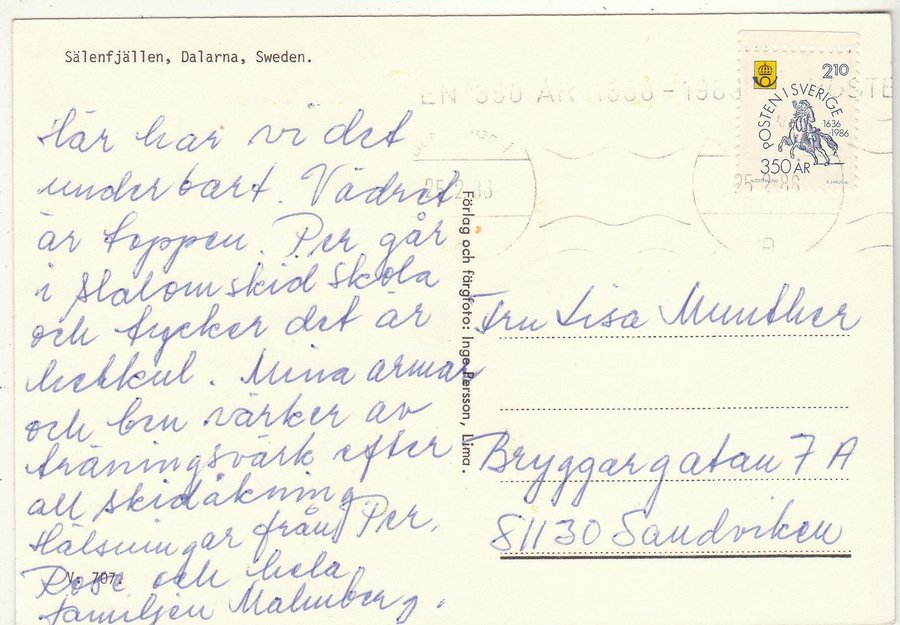 Sälenfjällen, Dalarna, Sweden.
Här har vi det
underbart. Vädret
är toppen. Per går
i slalomskidskola
och tycker det är
helkul. Mina armar
och ben värker av
träningsvärk efter
all skidåkning
Hälsningar från Per,
och hela
familjen Malmberg.
V. 707.
Förlag och färgfoto: Inge Persson, Lima.
EN 350 ÅR 1636-1986
25.2.86
25.2.86
210
POSTEN I SVERIGE
1636
-1986
350 ÅR
Fru Lisa Munther
Bryggargatan 7 A
81130 Sandviken